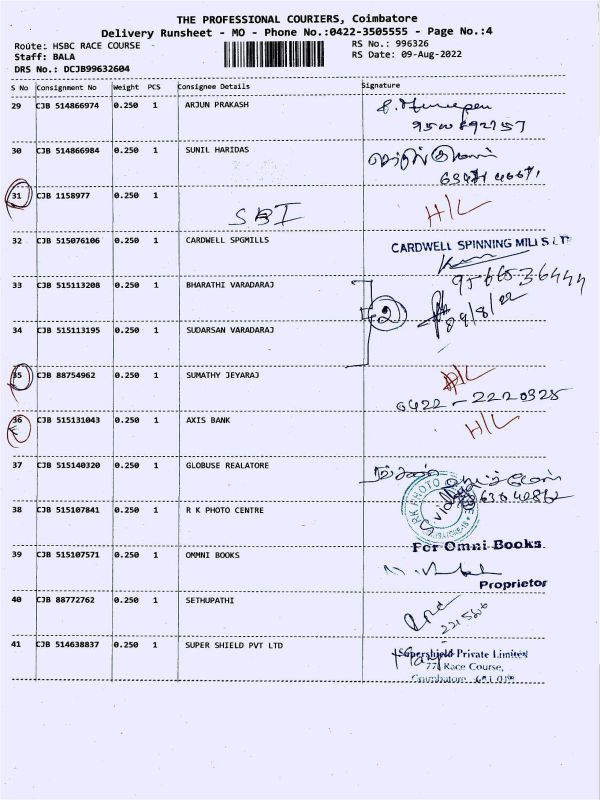 THE PROFESSIONAL COURIERS, Coimbatore
Delivery Runsheet - MO - Phone No.:0422-3505555 - Page No.:4
Route: HSBC RACE COURSE
RS No.: 996326
Staff: BALA
RS Date: 09-Aug-2022
DRS No.: DCJB99632604
S No Consignment No Weight PCS Consignee Details Signature
29 CJB 514866974 0.250 1 ARJUN PRAKASH
30 CJB 514866984 0.250 1 SUNIL HARIDAS
31 CJB 1158977 0.250 1 SBI H/L
32 CJB 515076106 0.250 1 CARDWELL SPGMILLS CARDWELL SPINNING MILLS LTD
9566536444
33 CJB 515113208 0.250 1 BHARATHI VARADARAJ
2 09/8/22
34 CJB 515113195 0.250 1 SUDARSAN VARADARAJ
35 CJB 88754962 0.250 1 SUMATHY JEYARAJ H/L
0422-2220328
36 CJB 515131043 0.250 1 AXIS BANK H/L
37 CJB 515140320 0.250 1 GLOBUSE REALATORE
38 CJB 515107841 0.250 1 R K PHOTO CENTRE RK PHOTO
For Omni Books
39 CJB 515107571 0.250 1 OMMNI BOOKS
Proprietor
40 CJB 88772762 0.250 1 SETHUPATHI
41 CJB 514638837 0.250 1 SUPER SHIELD PVT LTD Supershield Private Limited
77, Race Course,
Coimbatore